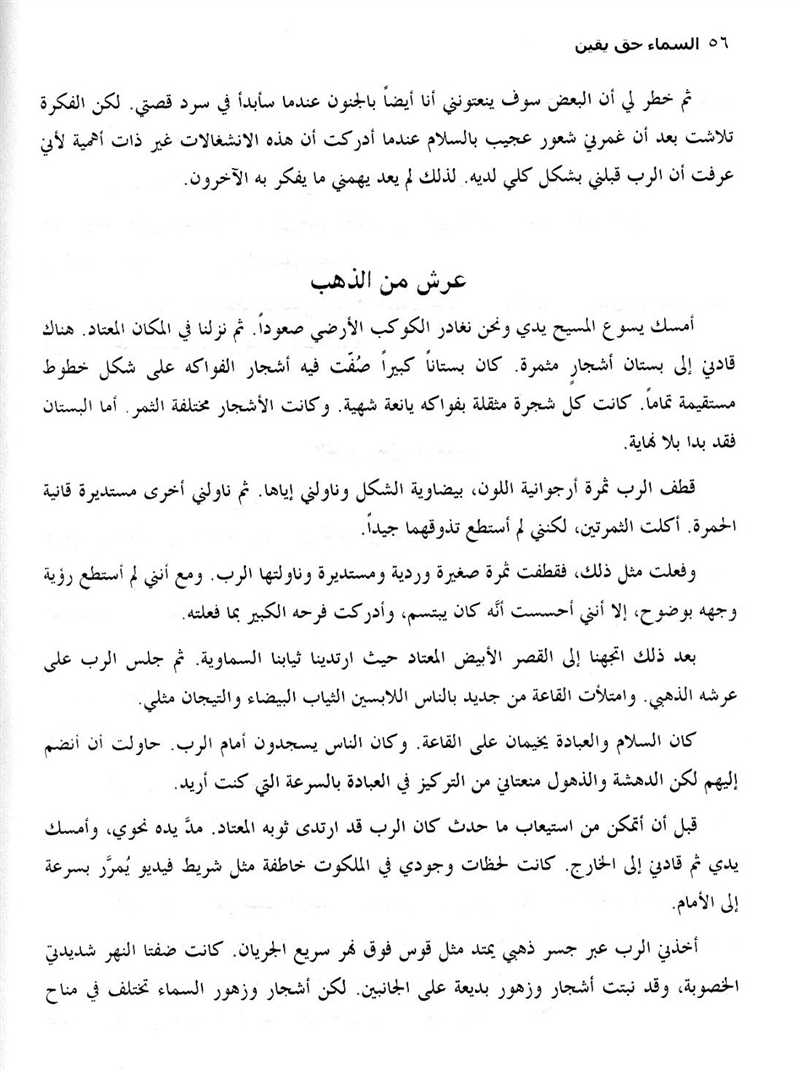 ٥٦ السماء حق يقين
ثم خطر لي أن البعض سوف ينعتونني أنا أيضاً بالجنون عندما سأبدأ في سرد قصتي. لكن الفكرة
تلاشت بعد أن غمرني شعور عجيب بالسلام عندما أدركت أن هذه الانشغالات غير ذات أهمية لأني
عرفت أن الرب قبلني بشكل كلي لديه. لذلك لم يعد يهمني ما يفكر به الآخرون.
عرش من الذهب
أمسك يسوع المسيح يدي ونحن نغادر الكوكب الأرضي صعوداً. ثم نزلنا في المكان المعتاد. هناك
قادني إلى بستان أشجارٍ مثمرة. كان بستاناً كبيراً صُفّت فيه أشجار الفواكه على شكل خطوط
مستقيمة تماماً. كانت كل شجرة مثقلة بفواكه يانعة شهية. وكانت الأشجار مختلفة الثمر. أما البستان
فقد بدا بلا نهاية.
قطف الرب ثمرة أرجوانية اللون، بيضاوية الشكل وناولني إياها. ثم ناولني أخرى مستديرة قانية
الحمرة. أكلت الثمرتين، لكنني لم أستطع تذوقهما جيداً.
وفعلت مثل ذلك، فقطفت ثمرة صغيرة وردية ومستديرة وناولتها الرب. ومع أنني لم أستطع رؤية
وجهه بوضوح، إلا أنني أحسست أنَّه كان يبتسم، وأدركت فرحه الكبير بما فعلته.
بعد ذلك اتجهنا إلى القصر الأبيض المعتاد حيث ارتدينا ثيابنا السماوية. ثم جلس الرب على
عرشه الذهبي. وامتلأت القاعة من جديد بالناس اللابسين الثياب البيضاء والتيجان مثلي.
كان السلام والعبادة يخيمان على القاعة. وكان الناس يسجدون أمام الرب. حاولت أن أنضم
إليهم لكن الدهشة والذهول منعتاني من التركيز في العبادة بالسرعة التي كنت أريد.
قبل أن أتمكن من استيعاب ما حدث كان الرب قد ارتدى ثوبه المعتاد. مدَّ يده نحوي، وأمسك
يدي ثم قادني إلى الخارج. كانت لحظات وجودي في الملكوت خاطفة مثل شريط فيديو يُمرَّر بسرعة
إلى الأمام.
أخذني الرب عبر جسر ذهبي يمتد مثل قوس فوق نهر سريع الجريان. كانت ضفتا النهر شديدتي
الخصوبة، وقد نبتت أشجار وزهور بديعة على الجانبين. لكن أشجار وزهور السماء تختلف في مناح